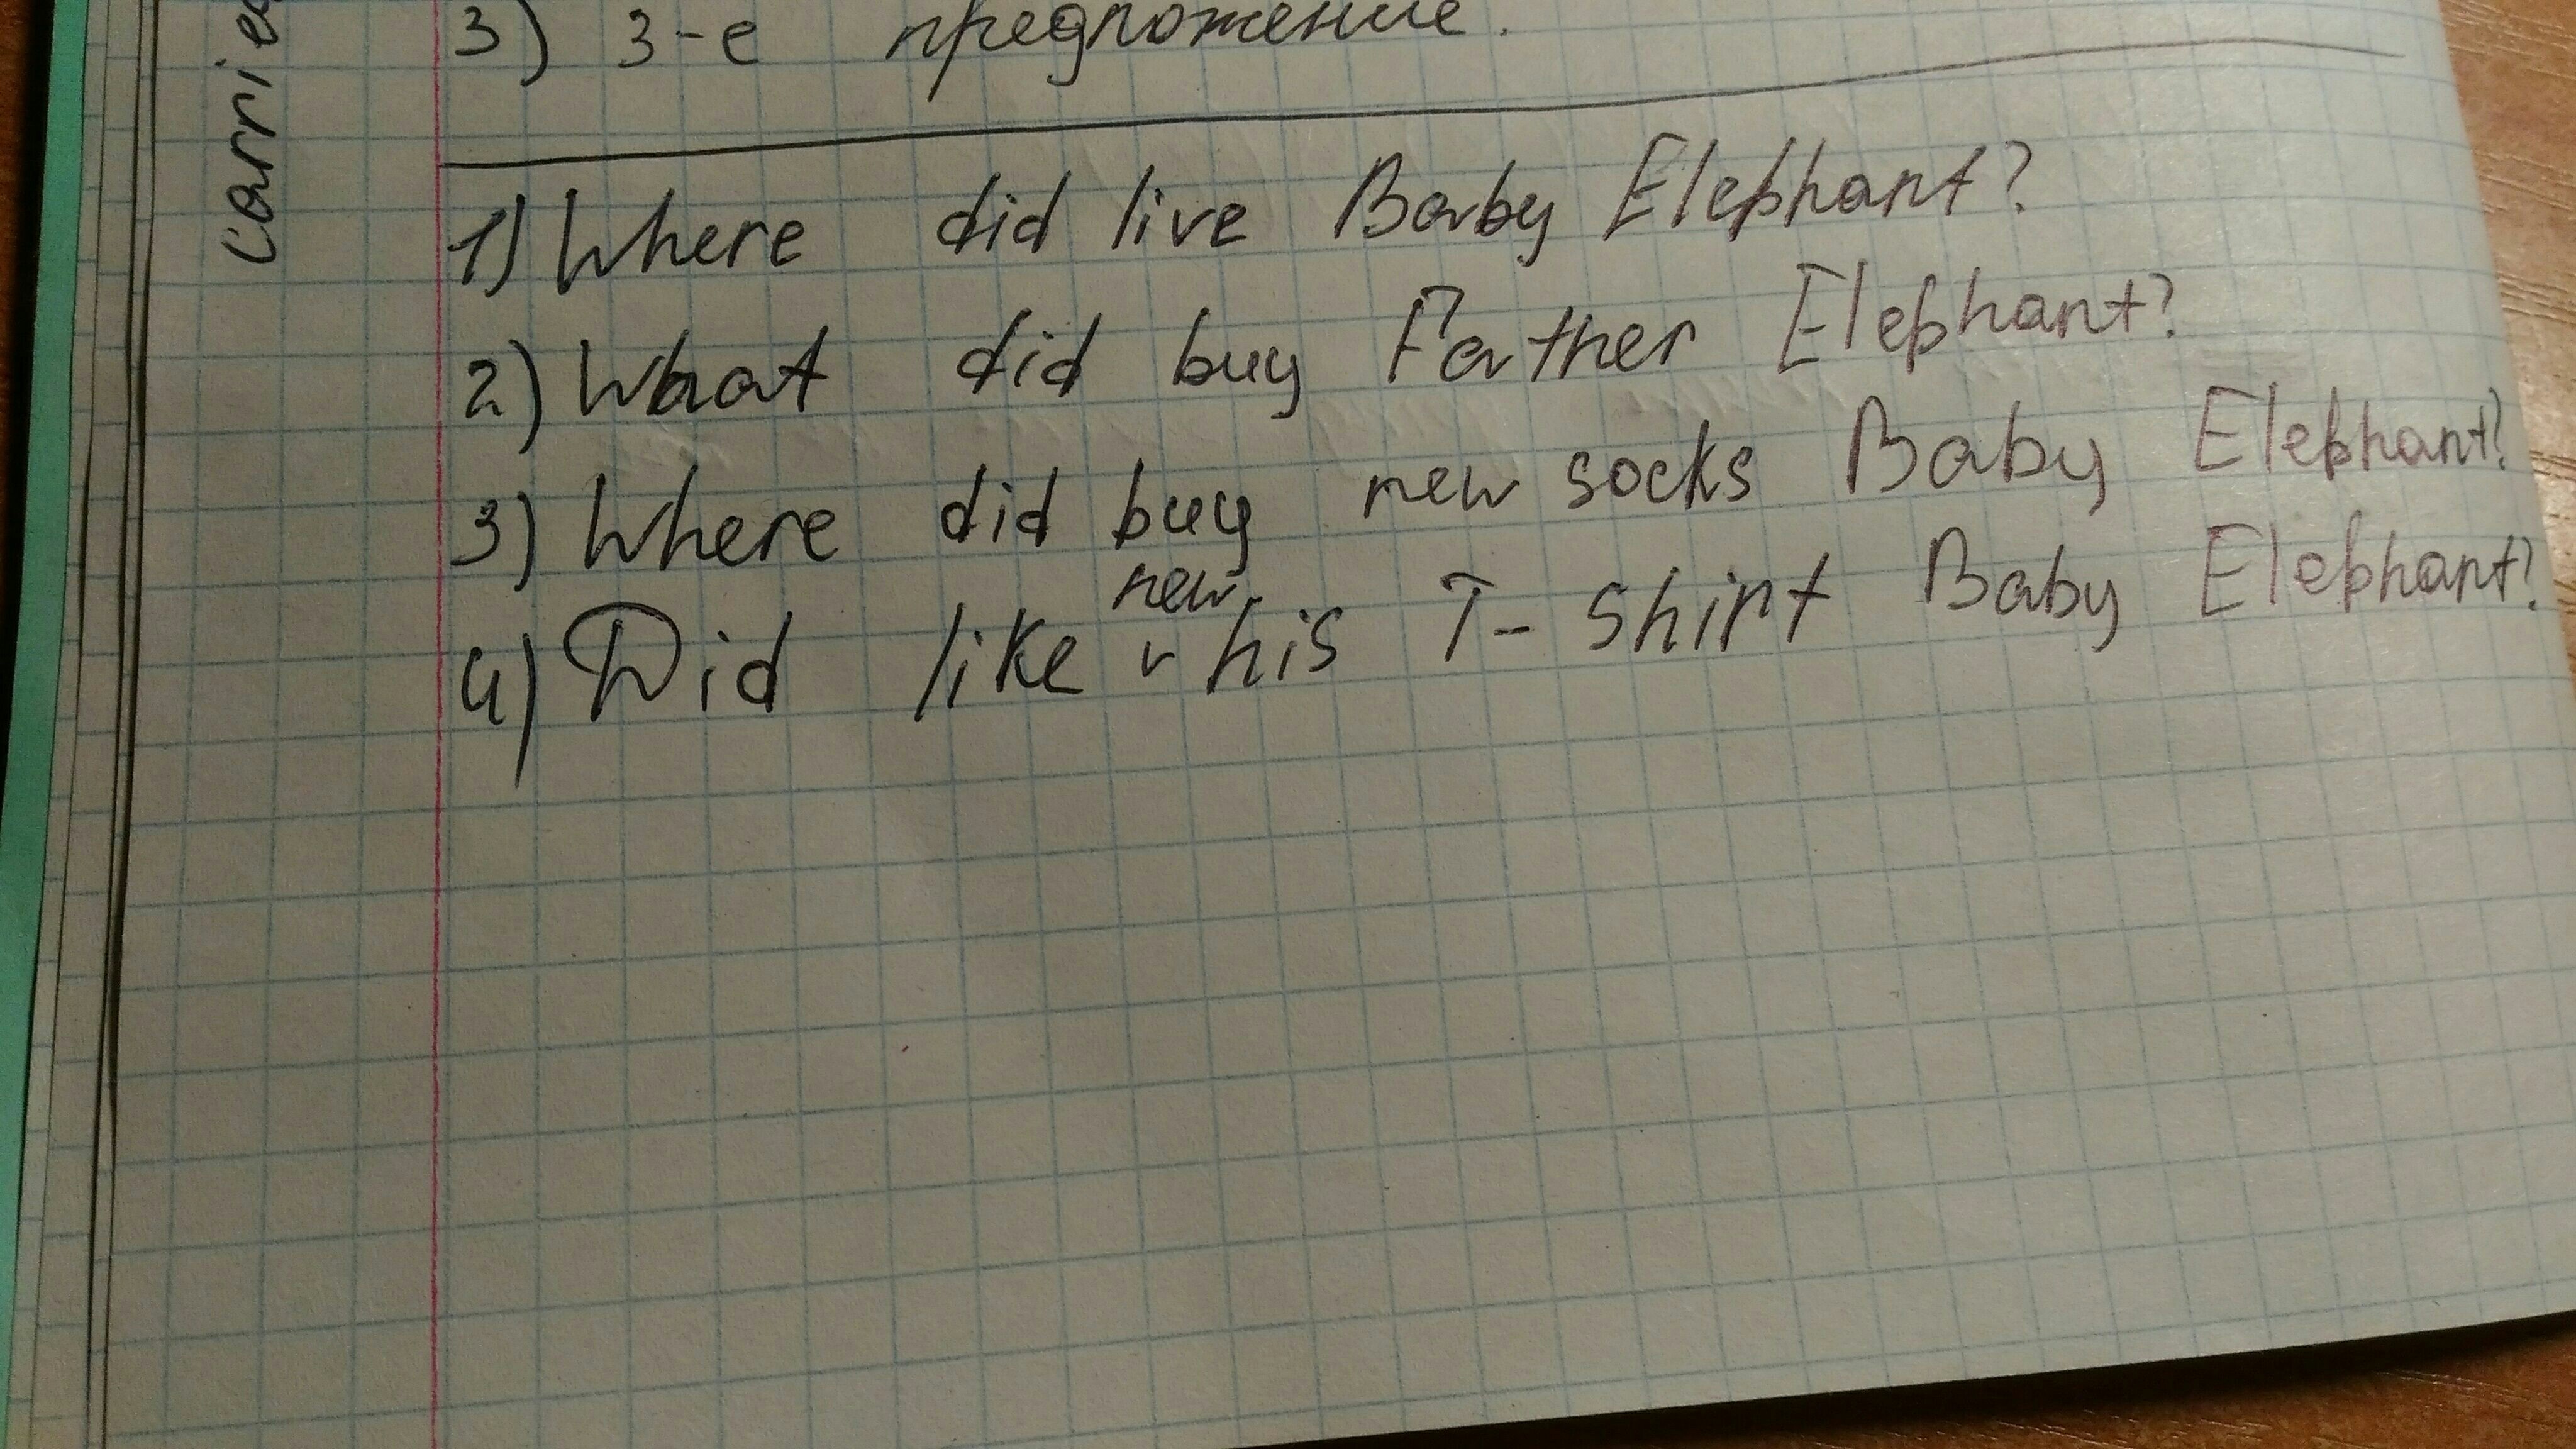 Carried
3) 3-е предложение.
1) Where did live Baby Elephant?
2) What did buy Father Elephant?
3) Where did buy new socks Baby Elephant?
new
4) Did like v his T-shirt Baby Elephant?